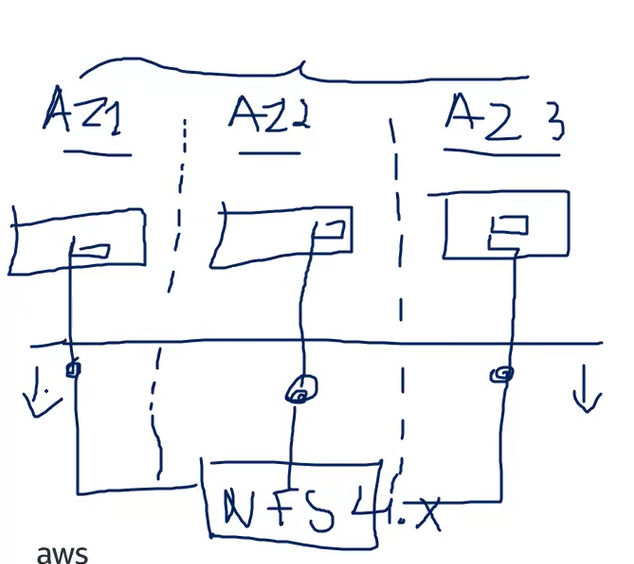 AZ1 AZ2 AZ 3
NFS 4.x
aws